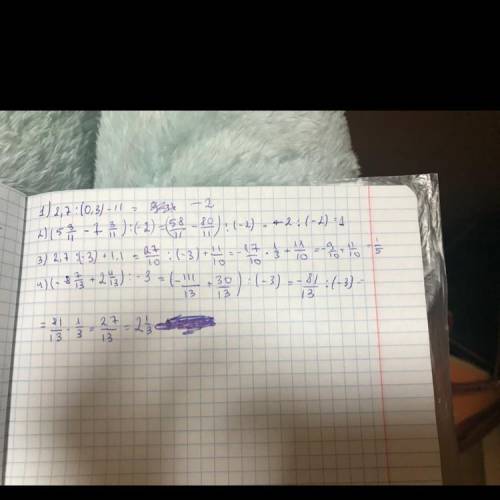 1) 2,7 : (0,3) - 11 = -2
2) (5 3/11 - 7 3/11) : (-2) = (58/11 - 80/11) : (-2) = -2 : (-2) = 1
3) 2,7 : (-3) + 1,1 = 27/10 : (-3) + 11/10 = -27/10 · 1/3 + 11/10 = -9/10 + 11/10 = 1/5
4) (-8 7/13 + 2 4/13) : -3 = (-111/13 + 30/13) : (-3) = -81/13 : (-3) =
= 81/13 · 1/3 = 27/13 = 2 1/3